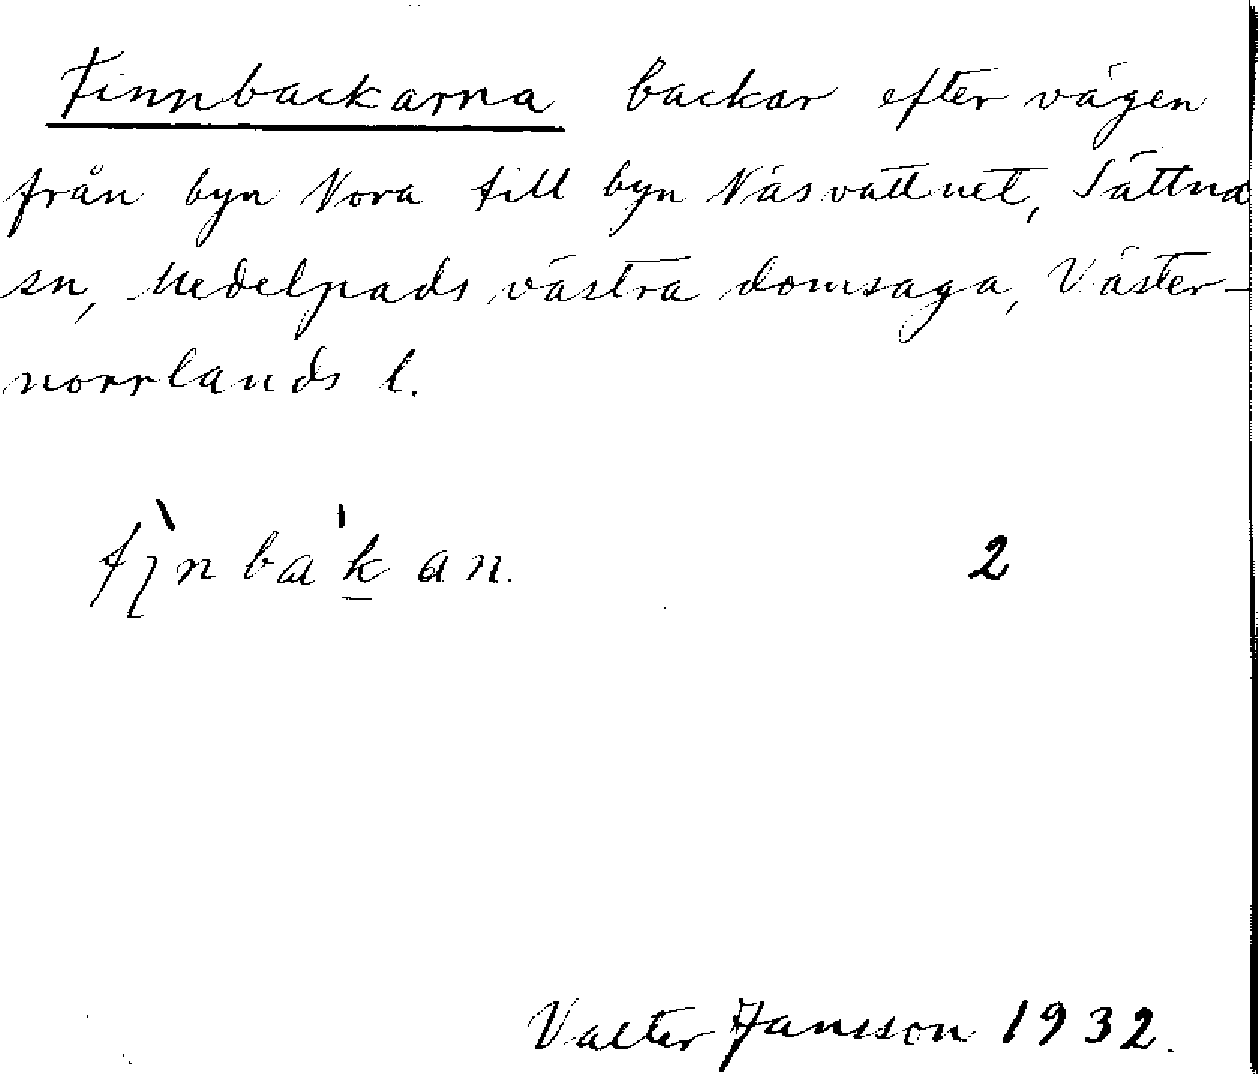 Finnbackarna backar efter vägen
från byn Nora till byn Näsvattnet, Sättna
sn, Medelpads västra domsaga, Väster-
norrlands l.
fı̨̀nba'k̲an. 2
Valter Jansson 1932.